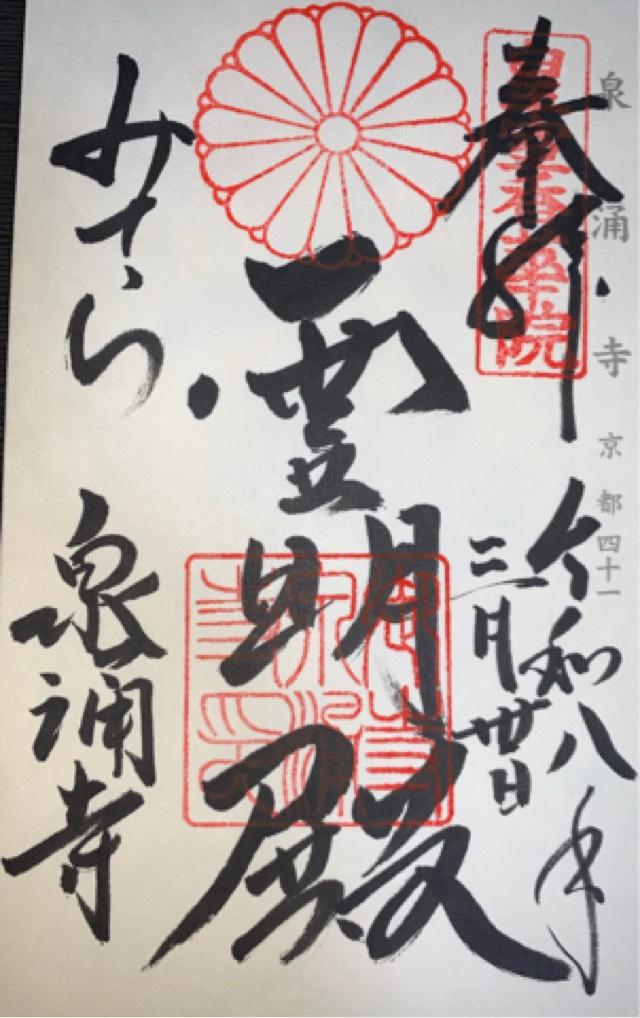 泉涌寺 京都四十一
奉拝
皇室香華院
令和八年
三月廿日
霊明殿
みてら 泉涌寺